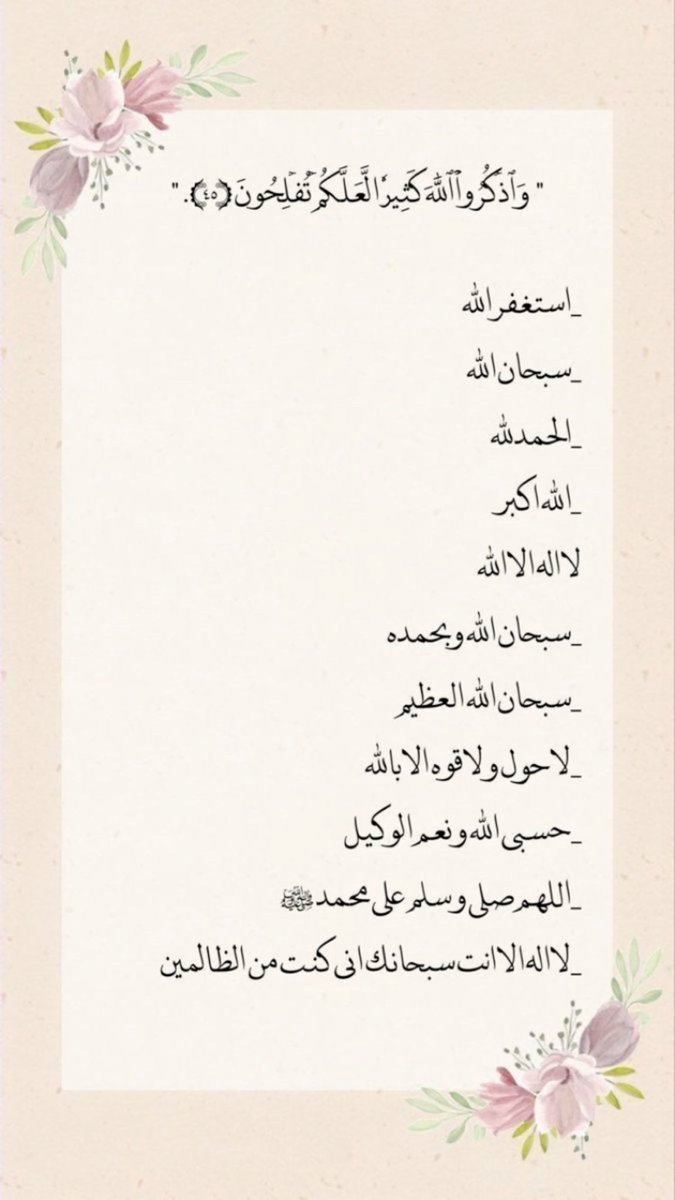 " وَٱذۡكُرُواْ ٱللَّهَ كَثِيرٗا لَّعَلَّكُمۡ تُفۡلِحُونَ ﴿٤٥﴾. "
_استغفر الله
_سبحان الله
_الحمدلله
_الله اكبر
لا اله الا الله
_سبحان الله وبحمده
_سبحان الله العظيم
_لا حول ولا قوه الا بالله
_حسبي الله ونعم الوكيل
_اللهم صلي وسلم على محمد ﷺ
_لا اله الا انت سبحانك اني كنت من الظالمين